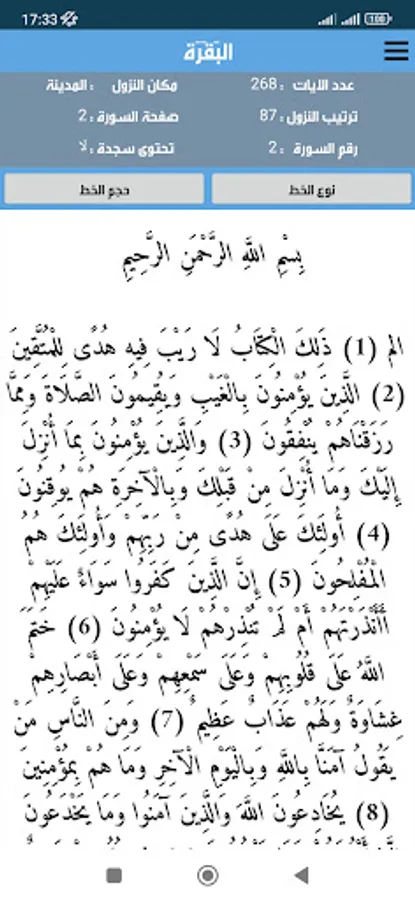 17:33
100
البقرة
عدد الايات : 268 مكان النزول : المدينة
ترتيب النزول : 87 صفحة السورة : 2
رقم السورة : 2 تحتوى سجدة : لا
نوع الخط حجم الخط
بِسْمِ اللَّهِ الرَّحْمَنِ الرَّحِيمِ
الم (1) ذَلِكَ الْكِتَابُ لَا رَيْبَ فِيهِ هُدًى لِلْمُتَّقِينَ
(2) الَّذِينَ يُؤْمِنُونَ بِالْغَيْبِ وَيُقِيمُونَ الصَّلَاةَ وَمِمَّا
رَزَقْنَاهُمْ يُنْفِقُونَ (3) وَالَّذِينَ يُؤْمِنُونَ بِمَا أُنْزِلَ
إِلَيْكَ وَمَا أُنْزِلَ مِنْ قَبْلِكَ وَبِالْآخِرَةِ هُمْ يُوقِنُونَ
(4) أُولَئِكَ عَلَى هُدًى مِنْ رَبِّهِمْ وَأُولَئِكَ هُمُ
الْمُفْلِحُونَ (5) إِنَّ الَّذِينَ كَفَرُوا سَوَاءٌ عَلَيْهِمْ
أَأَنْذَرْتَهُمْ أَمْ لَمْ تُنْذِرْهُمْ لَا يُؤْمِنُونَ (6) خَتَمَ
اللَّهُ عَلَى قُلُوبِهِمْ وَعَلَى سَمْعِهِمْ وَعَلَى أَبْصَارِهِمْ
غِشَاوَةٌ وَلَهُمْ عَذَابٌ عَظِيمٌ (7) وَمِنَ النَّاسِ مَنْ
يَقُولُ آمَنَّا بِاللَّهِ وَبِالْيَوْمِ الْآخِرِ وَمَا هُمْ بِمُؤْمِنِينَ
(8) يُخَادِعُونَ اللَّهَ وَالَّذِينَ آمَنُوا وَمَا يَخْدَعُونَ